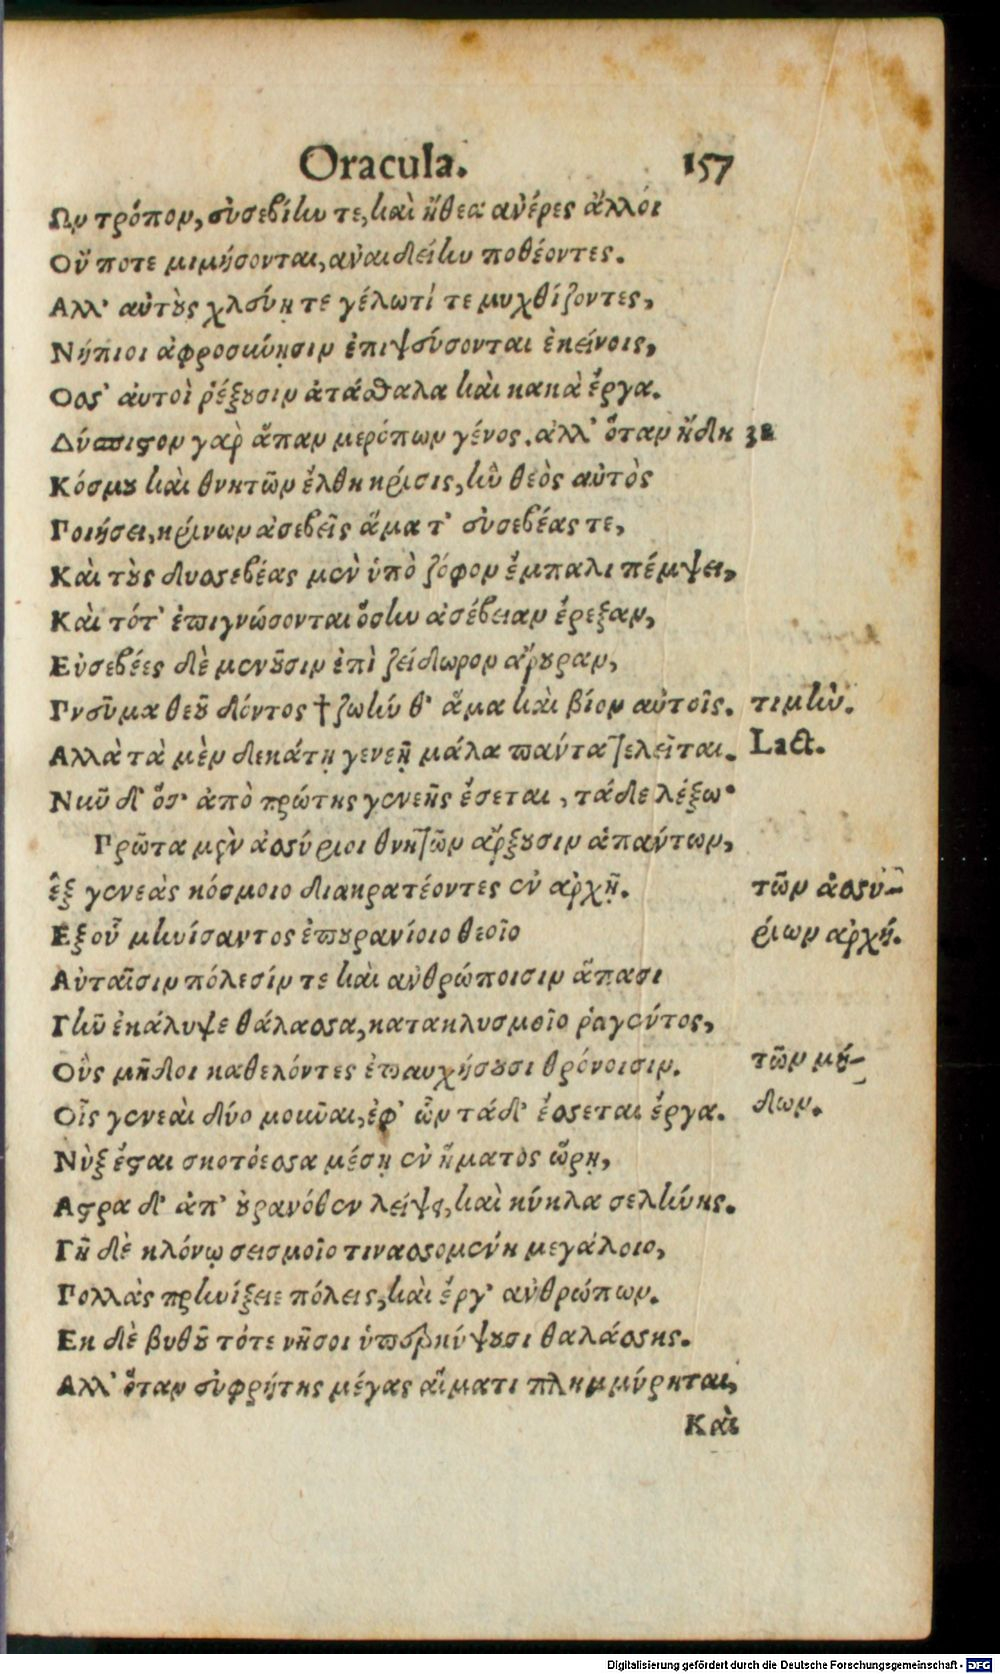 Oracula. 157
Ὧν τρόπον, εὐσεβίην τε, καὶ ἤθεα ἀνέρες ἄλλοι
Οὔ ποτε μιμήσονται, ἀναιδείην ποθέοντες.
Ἀλλ' αὐτοὺς χλεύῃ τε γέλωτί τε μυχθίζοντες,
Νήπιοι ἀφροσύνῃσιν ἐπιψεύσονται ἐκείνοις,
Ὅσσ' αὐτοὶ ῥέξουσιν ἀτάσθαλα καὶ κακὰ ἔργα.
Δύσπιστον γὰρ ἅπαν μερόπων γένος. ἀλλ' ὅταν ἤδη
Κόσμου καὶ θνητῶν ἔλθη κρίσις, ἣν θεὸς αὐτὸς
Ποιήσει, κρίνων ἀσεβεῖς ἅμα τ' εὐσεβέας τε,
Καὶ τοὺς δυσσεβέας μὲν ὑπὸ ζόφον ἔμπαλι πέμψει,
Καὶ τότ' ἐπιγνώσονται ὅσην ἀσέβειαν ἔρεξαν,
Εὐσεβέες δὲ μενοῦσιν ἐπὶ ζείδωρον ἄρουραν,
Πνεῦμα θεοῦ δόντος † ζωήν θ' ἅμα καὶ βίον αὐτοῖς. τιμήν.
Ἀλλὰ τὰ μὲν δεκάτῃ γενεῇ μάλα πάντα τελεῖται. Lact.
Νῦν δ' ὅσ' ἀπὸ πρώτης γενεῆς ἔσεται, τάδε λέξω·
Πρῶτα μὲν ἀσσύριοι θνητῶν ἄρξουσιν ἁπάντων,
ἓξ γενεὰς κόσμοιο διακρατέοντες ἐν ἀρχῇ. τῶν ἀσσυ-
Ἐξ οὗ μηνίσαντος ἐπουρανίοιο θεοῖο ρίων ἀρχή.
Αὐταῖσιν πόλεσίν τε καὶ ἀνθρώποισιν ἅπασι
Γῆν ἐκάλυψε θάλασσα, κατακλυσμοῖο ῥαγέντος,
Οὓς μῆδοι καθελόντες ἐπαυχήσουσι θρόνοισιν. τῶν μή-
Οἷς γενεαὶ δύο μοῦναι, ἐφ' ὧν τάδ' ἔσσεται ἔργα. δων.
Νὺξ ἔσται σκοτόεσσα μέσῃ ἐν ἤματος ὥρῃ,
Ἄστρα δ' ἀπ' οὐρανόθεν λείψει, καὶ κύκλα σελήνης.
Γῆ δὲ κλόνῳ σεισμοῖο τινασσομένη μεγάλοιο,
Πολλὰς πρηνίξειε πόλεις, καὶ ἔργ' ἀνθρώπων.
Ἐκ δὲ βυθοῦ τότε νῆσοι ὑπερκύψουσι θαλάσσης.
Ἀλλ' ὅταν εὐφρήτης μέγας αἵματι πλημμύρηται,
Καὶ
Digitalisierung gefördert durch die Deutsche Forschungsgemeinschaft - DFG